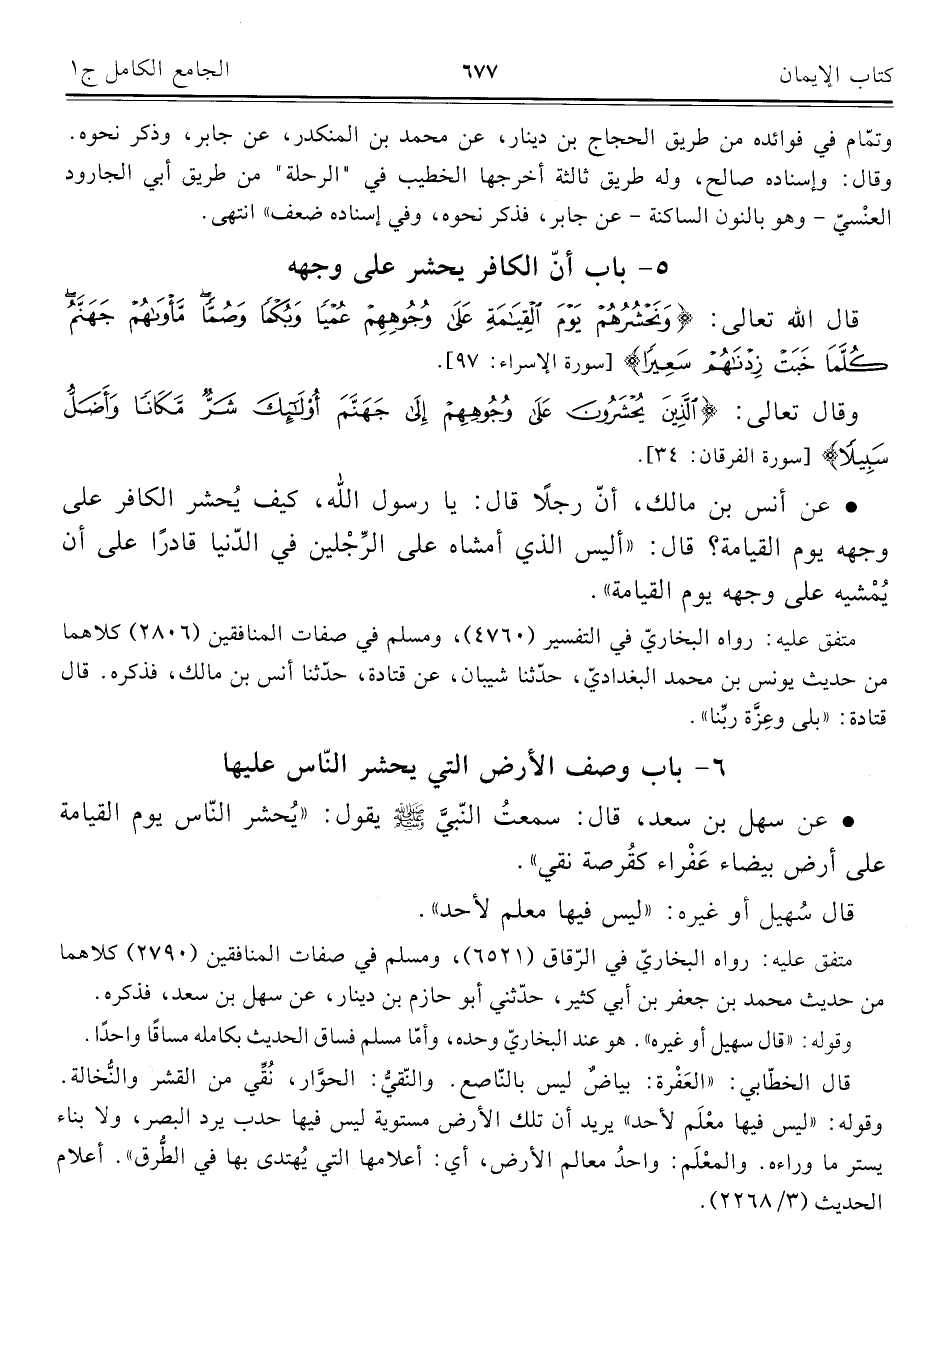 كتاب الإيمان ٦٧٧ الجامع الكامل ج١
وتمّام في فوائده من طريق الحجاج بن دينار، عن محمد بن المنكدر، عن جابر، وذكر نحوه.
وقال: وإسناده صالح، وله طريق ثالثة أخرجها الخطيب في "الرحلة" من طريق أبي الجارود
العنْسيّ - وهو بالنون الساكنة - عن جابر، فذكر نحوه، وفي إسناده ضعف» انتهى.
٥- باب أنّ الكافر يحشر على وجهه
قال الله تعالى: ﴿وَنَحْشُرُهُمْ يَوْمَ ٱلْقِيَٰمَةِ عَلَىٰ وُجُوهِهِمْ عُمْيًا وَبُكْمًا وَصُمًّا ۖ مَّأْوَىٰهُمْ جَهَنَّمُ ۖ
كُلَّمَا خَبَتْ زِدْنَٰهُمْ سَعِيرًا﴾ [سورة الإسراء: ٩٧].
وقال تعالى: ﴿ٱلَّذِينَ يُحْشَرُونَ عَلَىٰ وُجُوهِهِمْ إِلَىٰ جَهَنَّمَ أُو۟لَٰٓئِكَ شَرٌّ مَّكَانًا وَأَضَلُّ
سَبِيلًا﴾ [سورة الفرقان: ٣٤].
● عن أنس بن مالك، أنّ رجلًا قال: يا رسول الله، كيف يُحشر الكافر على
وجهه يوم القيامة؟ قال: «أليس الذي أمشاه على الرِّجْلين في الدّنيا قادرًا على أن
يُمْشيه على وجهه يوم القيامة».
متفق عليه: رواه البخاريّ في التفسير (٤٧٦٠)، ومسلم في صفات المنافقين (٢٨٠٦) كلاهما
من حديث يونس بن محمد البغداديّ، حدّثنا شيبان، عن قتادة، حدّثنا أنس بن مالك، فذكره. قال
قتادة: «بلى وعِزَّة ربِّنا».
٦- باب وصف الأرض التي يحشر النّاس عليها
● عن سهل بن سعد، قال: سمعتُ النّبيَّ ﷺ يقول: «يُحشر النّاس يوم القيامة
على أرض بيضاء عَفْراء كقُرصة نقي».
قال سُهيل أو غيره: «ليس فيها معلم لأحد».
متفق عليه: رواه البخاريّ في الرّقاق (٦٥٢١)، ومسلم في صفات المنافقين (٢٧٩٠) كلاهما
من حديث محمد بن جعفر بن أبي كثير، حدّثني أبو حازم بن دينار، عن سهل بن سعد، فذكره.
وقوله: «قال سهيل أو غيره». هو عند البخاريّ وحده، وأمّا مسلم فساق الحديث بكامله مساقًا واحدًا.
قال الخطّابي: «العَفْرة: بياضٌ ليس بالنّاصع. والنّقيُّ: الحوَّار، نُقِّي من القشر والنُّخالة.
وقوله: «ليس فيها معْلَم لأحد» يريد أن تلك الأرض مستوية ليس فيها حدب يرد البصر، ولا بناء
يستر ما وراءه. والمعْلَم: واحدُ معالم الأرض، أي: أعلامها التي يُهتدى بها في الطُّرق». أعلام
الحديث (٣/ ٢٢٦٨).